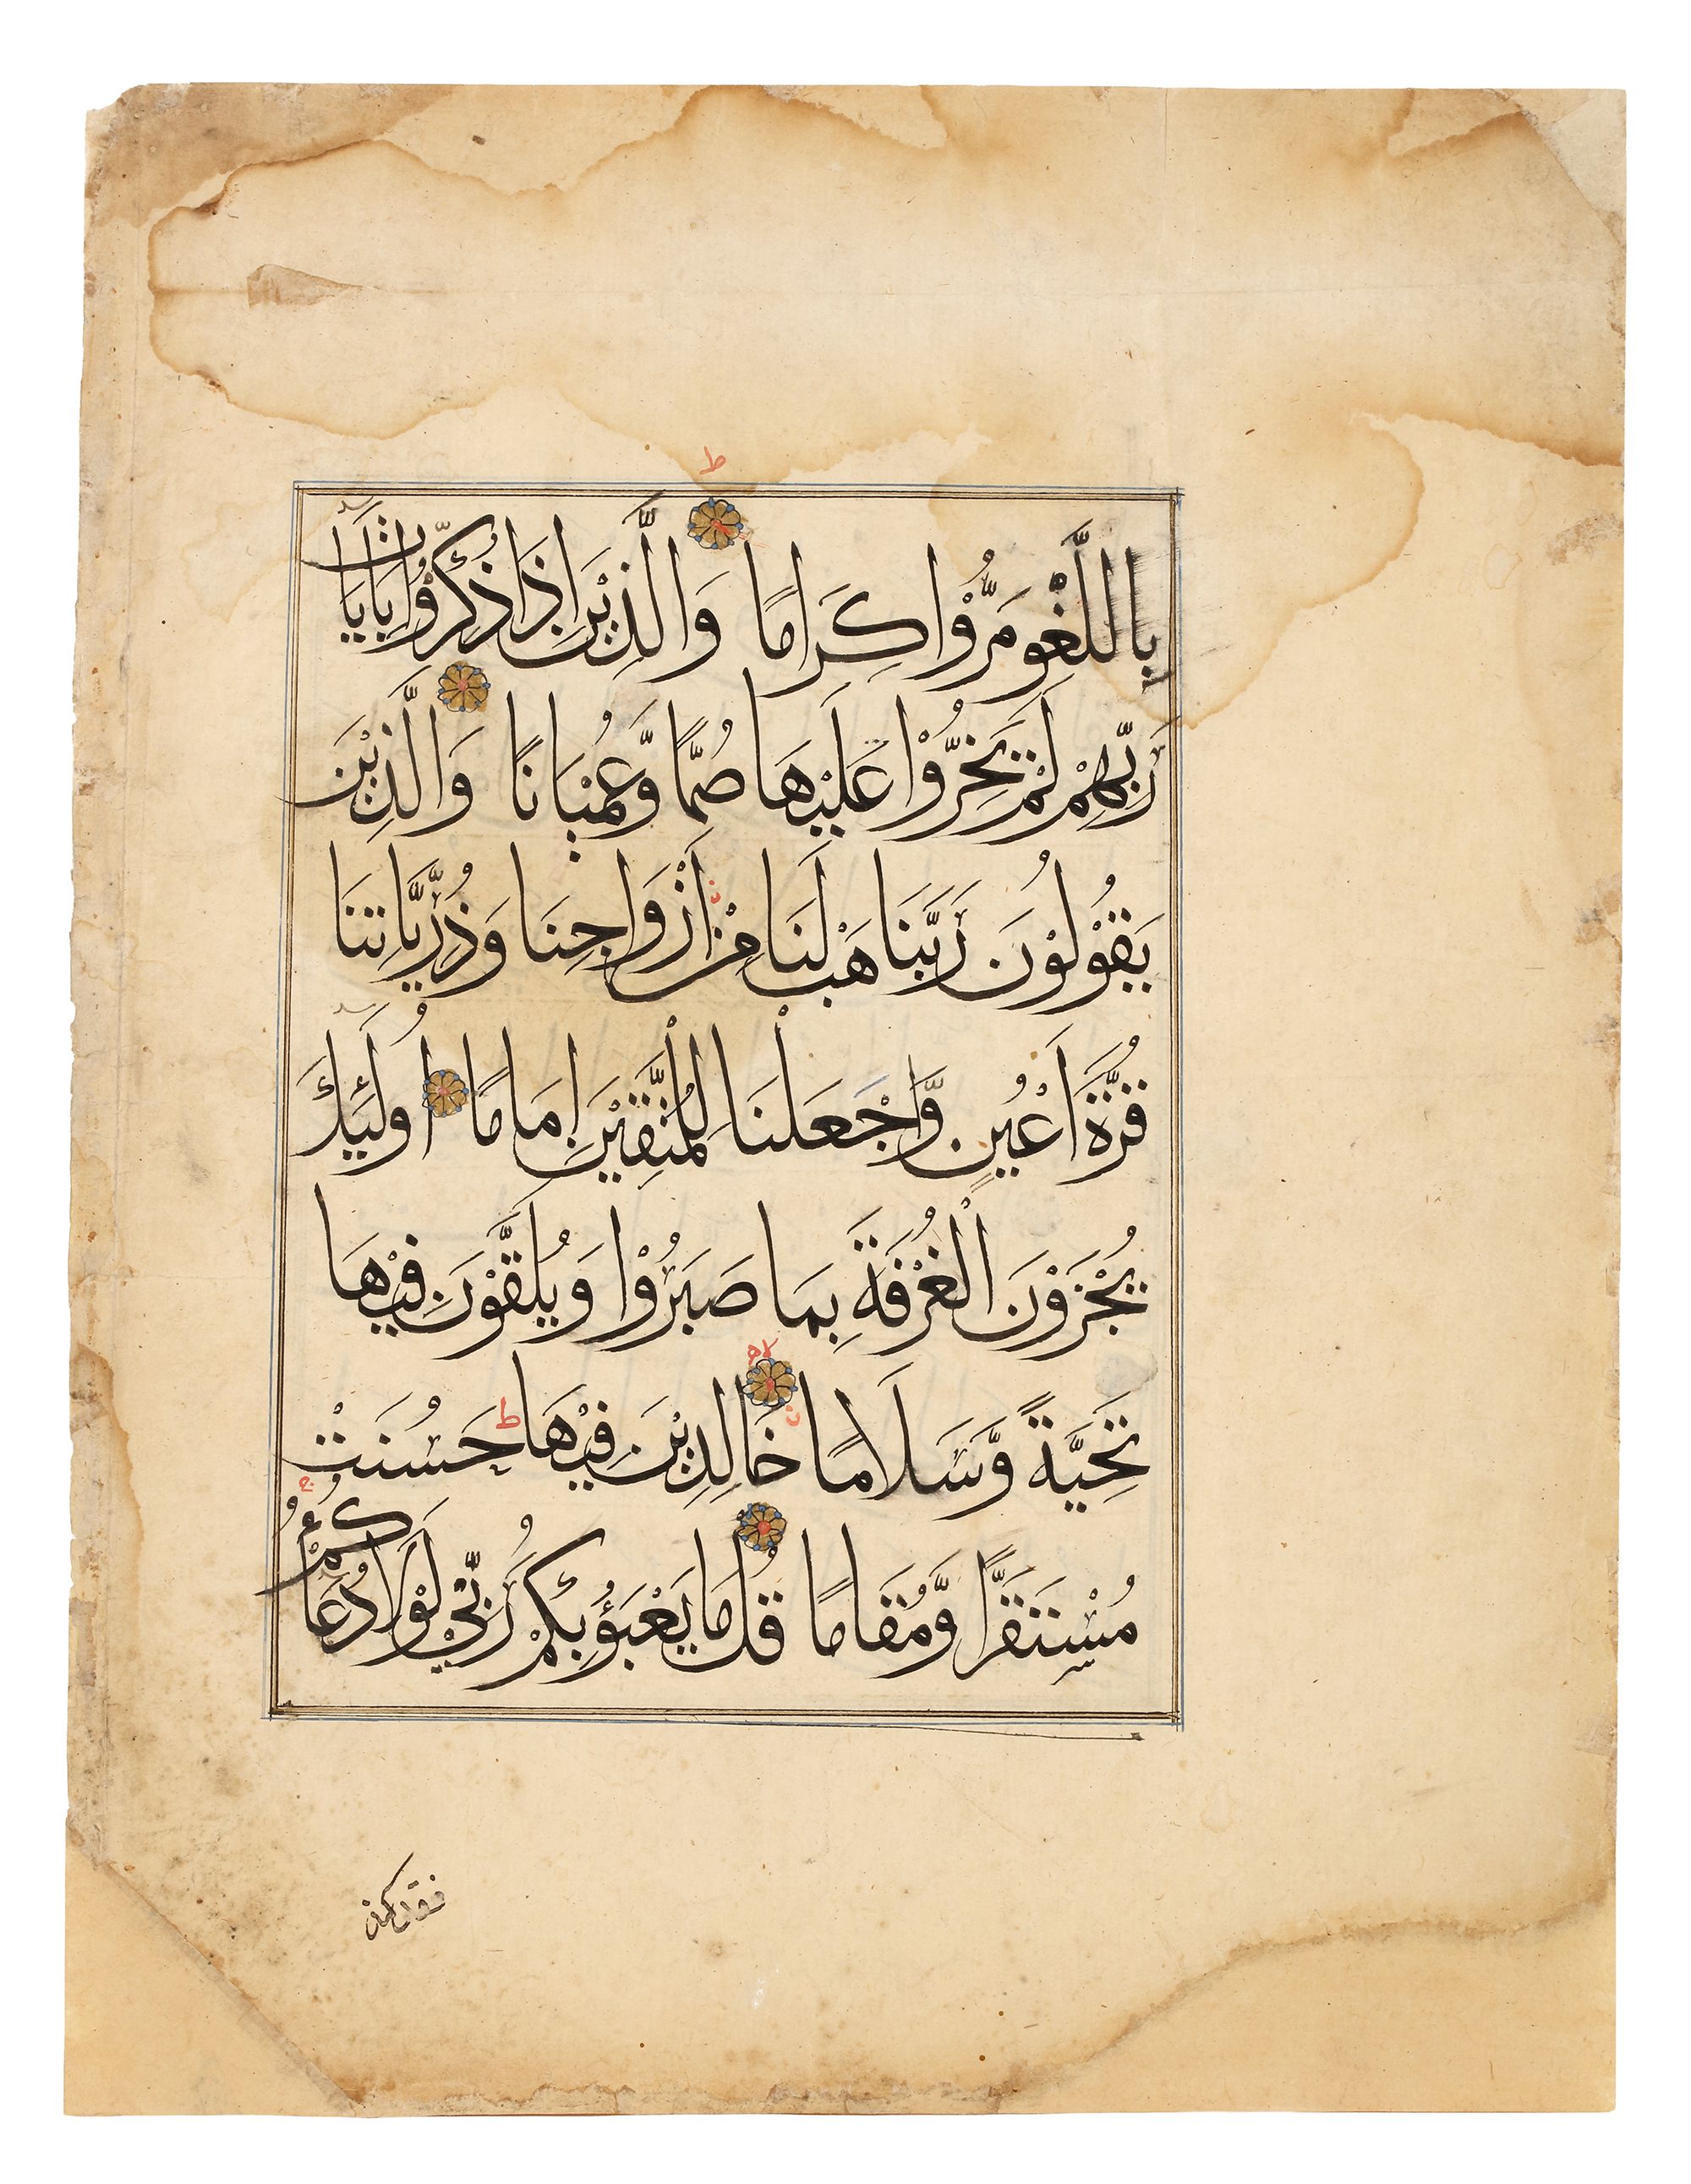 بِاللَّغْوِ مَرُّوْا كِرَامًا وَالَّذِيْنَ اِذَا ذُكِّرُوْا بِاٰيَاتِ
رَبِّهِمْ لَمْ يَخِرُّوْا عَلَيْهَا صُمًّا وَّعُمْيَانًا وَالَّذِيْنَ
يَقُوْلُوْنَ رَبَّنَا هَبْ لَنَا مِنْ اَزْوَاجِنَا وَذُرِّيَّاتِنَا
قُرَّةَ اَعْيُنٍ وَّاجْعَلْنَا لِلْمُتَّقِيْنَ اِمَامًا اُولَئِكَ
يُجْزَوْنَ الْغُرْفَةَ بِمَا صَبَرُوْا وَيُلَقَّوْنَ فِيْهَا
تَحِيَّةً وَّسَلَامًا خَالِدِيْنَ فِيْهَا حَسُنَتْ
مُسْتَقَرًّا وَّمُقَامًا قُلْ مَا يَعْبَؤُ بِكُمْ رَبِّيْ لَوْلَا دُعَاؤُكُمْ
فقد كذ